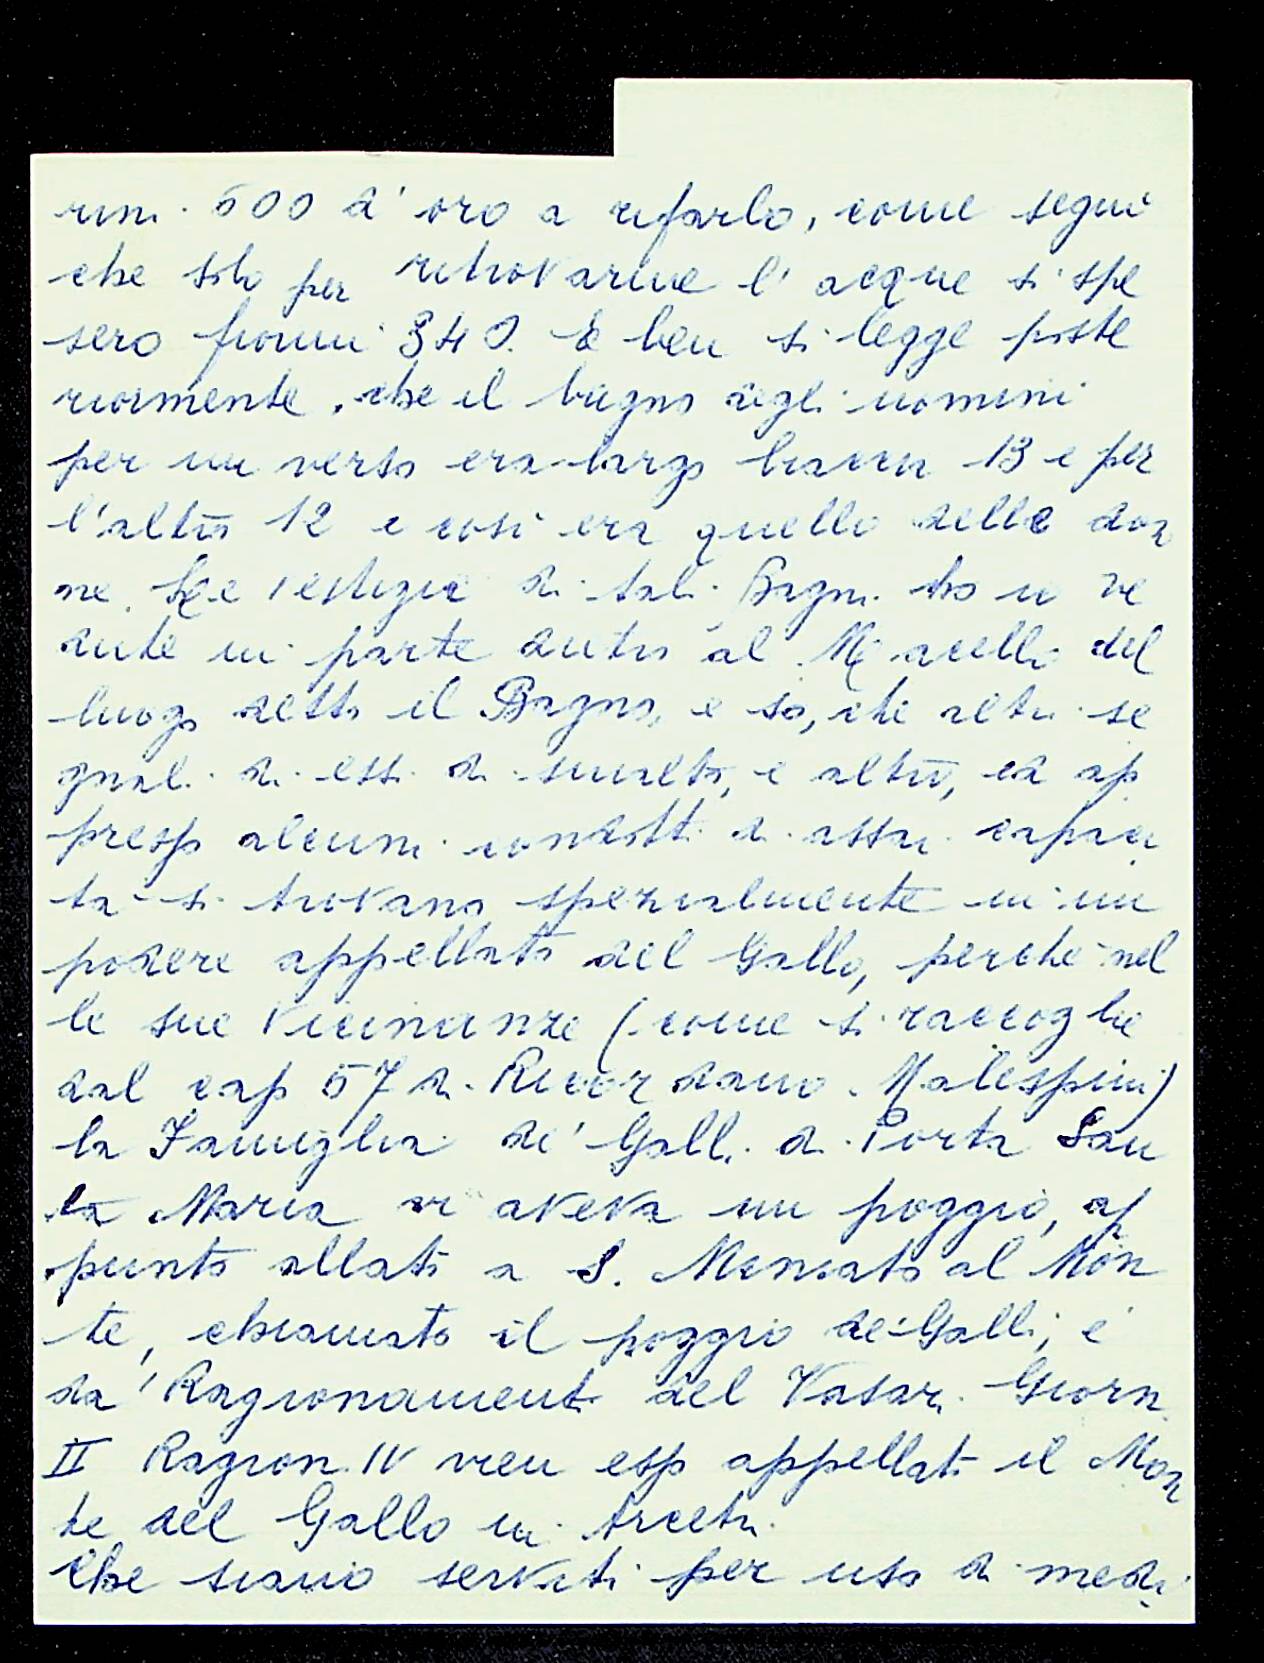 rini 500 d'oro a rifarlo, come seguì
che solo per ritrovarne l'acque si spe
sero fiorini 340. E ben si legge poste
riormente, che il bagno degli uomini
per un verso era largo braccia 13 e per
l'altro 12 e così era quello delle don
ne. Le vestigie di tali Bagni ho io ve
dute in parte dietro al Macello del
luogo detto il Bagno, e so, che altri se
gnali di essi di smalto, e altro, ed ap
presso alcuni condotti di assai capaci
tà si trovano spezialmente in un
podere appellato del Gallo, perchè nel
le sue vicinanze (come si raccoglie
dal cap 57 di Ricordano Malespini)
la Famiglia de' Galli di Porta San
ta Maria vi aveva un poggio, ap
punto allato a S. Miniato al Mon
te, chiamato il poggio de' Galli; e
da' Ragionamenti del Vasari Giorn.
II Ragion. IV vien esso appellato il Mon
te del Gallo in Arcetri.
Che siano serviti per uso di medi